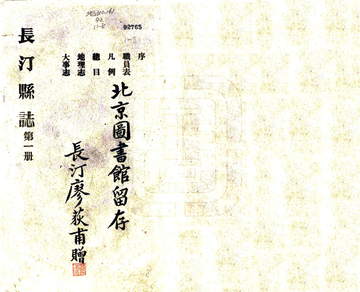 92765
序
職員表
凡例
總目
地理志
大事志
長汀縣誌 第一册
北京圖書館留存
長汀廖荻甫贈